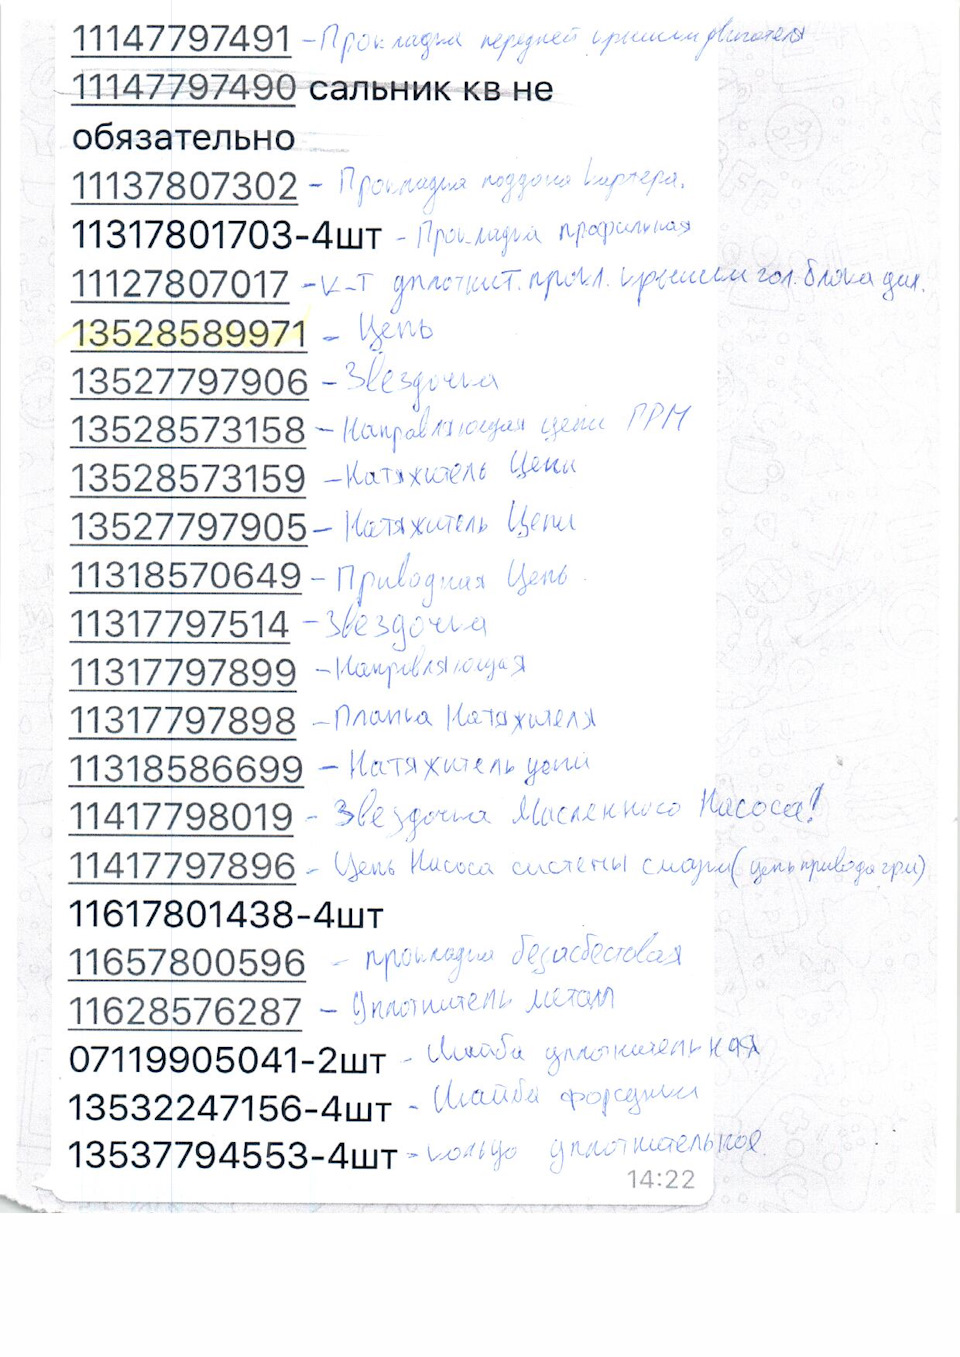 11147797491 - Прокладка передней крышки двигателя
11147797490 сальник кв не
обязательно
11137807302 - Прокладка поддона картера.
11317801703-4шт - Прокладка профильная
11127807017 - К-т уплотнит. прокл. крышки гол. блока дил.
13528589971 - Цепь
13527797906 - Звездочка
13528573158 - Направляющая цепи ГРМ
13528573159 - Натяжитель Цепи
13527797905 - Натяжитель Цепи
11318570649 - Приводная Цепь
11317797514 - Звездочка
11317797899 - Направляющая
11317797898 - Планка Натяжителя
11318586699 - Натяжитель цепи
11417798019 - Звездочка Масленного Насоса!
11417797896 - Цепь Насоса системы смазки (цепь привода грм)
11617801438-4шт
11657800596 - прокладка безасбестовая
11628576287 - Уплотнитель металл
07119905041-2шт - Шайба уплотнительная
13532247156-4шт - Шайба форсунки
13537794553-4шт - кольцо уплотнительное
14:22